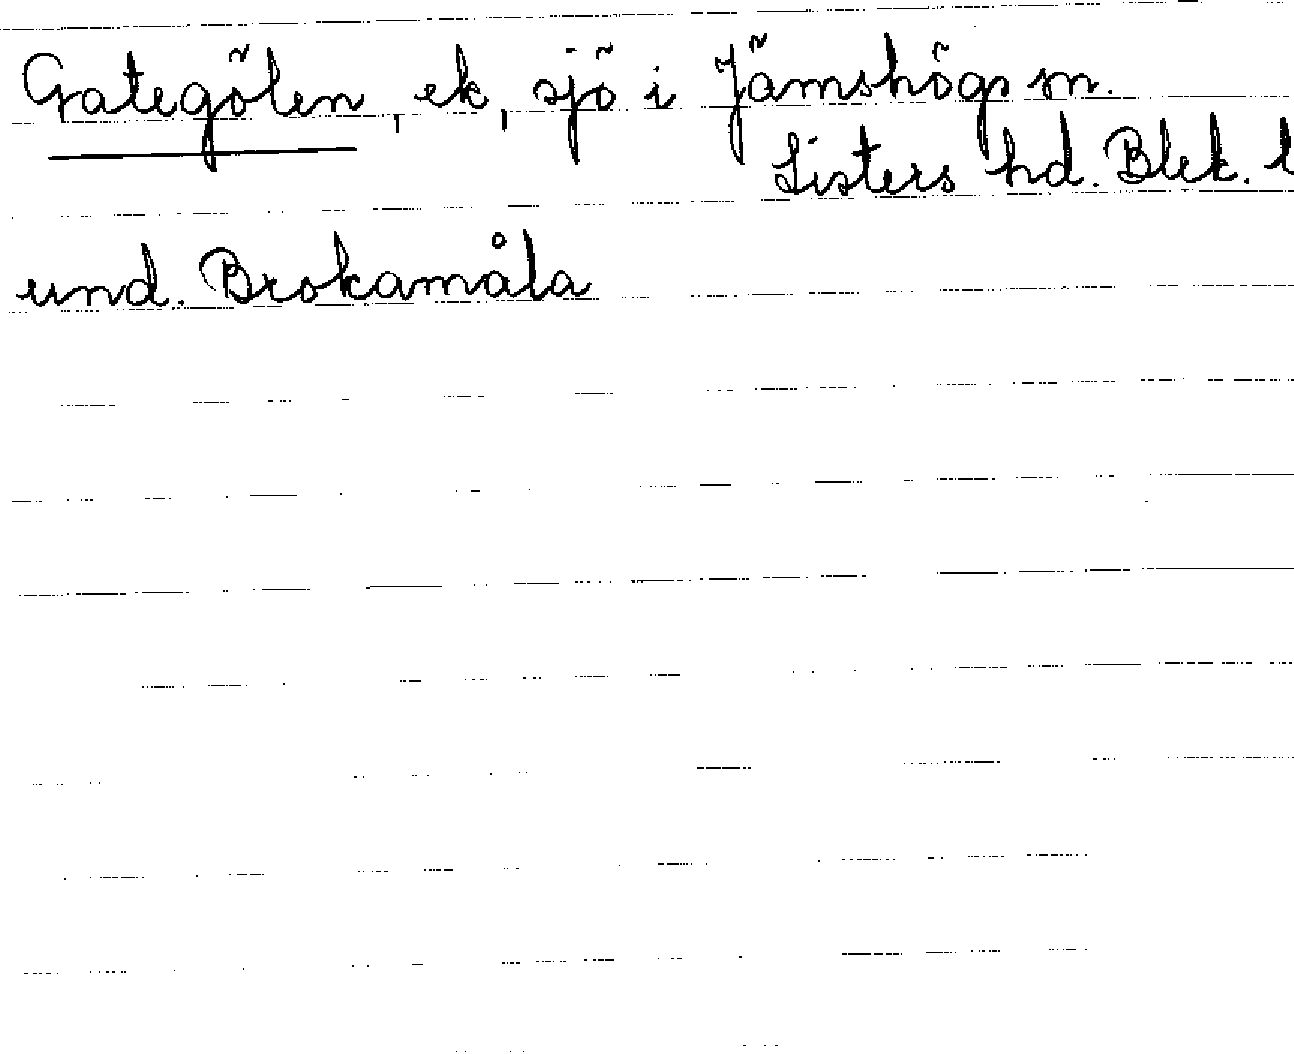 Gategölen, ek, sjö i Jämshögs sn.
Listers hd. Blek. l
und. Brokamåla